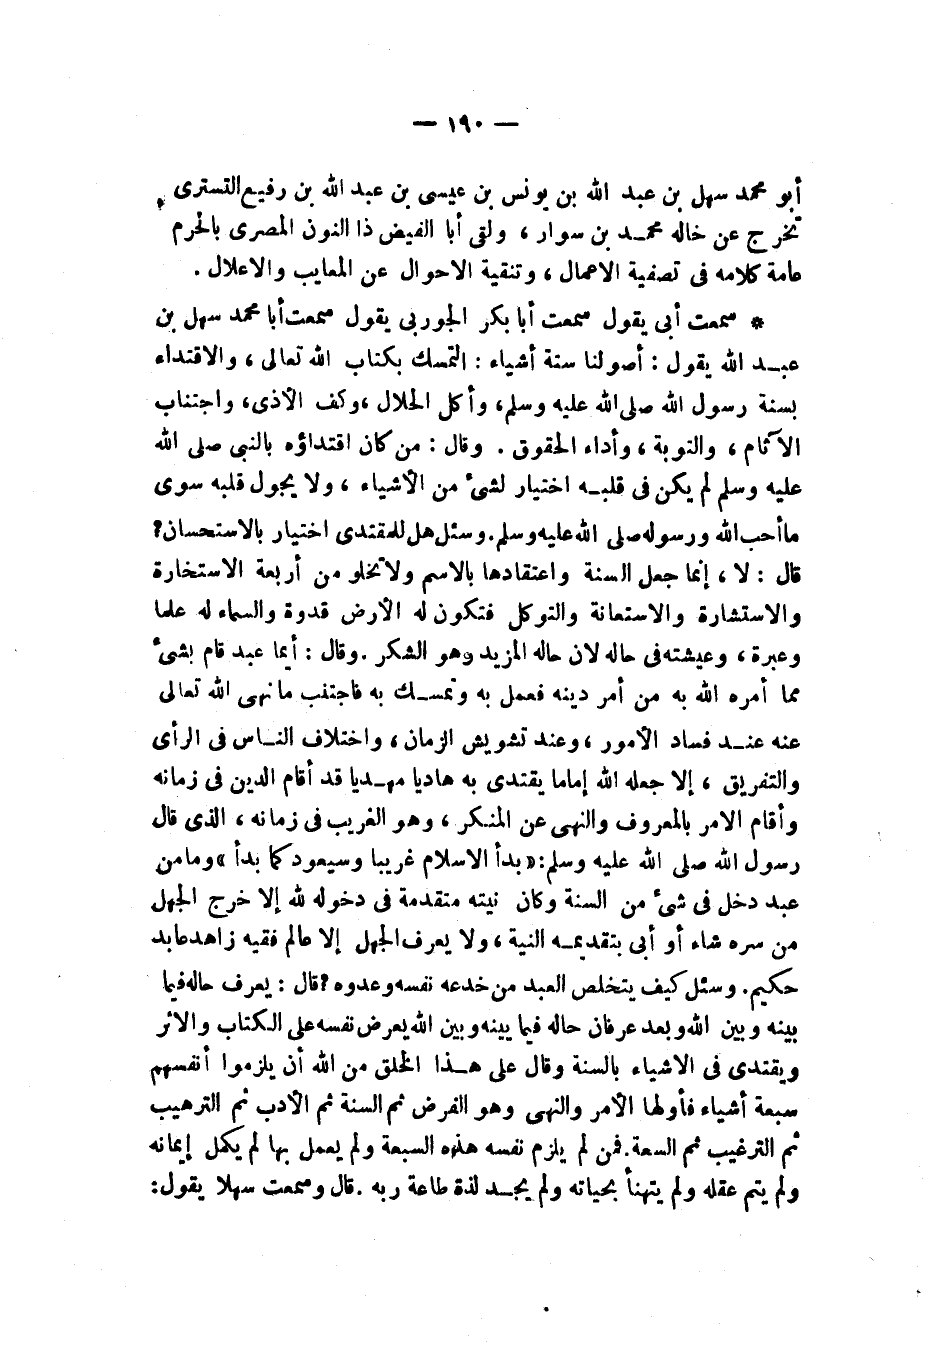 — ١٩٠ —
أبو محمد سهل بن عبد الله بن يونس بن عيسى بن عبد الله بن رفيع التسترى
تخرج عن خاله محمد بن سوار ، ولقى أبا الفيض ذا النون المصرى بالحرم
عامة كلامه فى تصفية الاعمال ، وتنقية الاحوال عن المعايب والاعلال .
* سمعت أبى يقول سمعت أبا بكر الجوربى يقول سمعت أبا محمد سهل بن
عبد الله يقول : أصولنا ستة أشياء : التمسك بكتاب الله تعالى ، والاقتداء
بسنة رسول الله صلى الله عليه وسلم، وأكل الحلال ، وكف الأذى، واجتناب
الآثام ، والتوبة ، وأداء الحقوق . وقال : من كان اقتداؤه بالنبي صلى الله
عليه وسلم لم يكن فى قلبه اختيار لشئ من الأشياء ، ولا يجول قلبه سوى
ما أحب الله ورسوله صلى الله عليه وسلم. وسئل هل للمقتدى اختيار بالاستحسان؟
قال : لا ، إنما جعل السنة واعتقادها بالاسم ولا تخلو من أربعة الاستخارة
والاستشارة والاستعانة والتوكل فتكون له الأرض قدوة والسماء له علما
وعبرة ، وعيشته فى حاله لان حاله المزيد وهو الشكر . وقال : أيما عبد قام بشئ
مما أمره الله به من أمر دينه فعمل به وتمسك به فاجتنب ما نهى الله تعالى
عنه عند فساد الأمور ، وعند تشويش الزمان ، واختلاف الناس فى الرأى
والتفريق ، إلا جعله الله إماما يقتدى به هاديا مهديا قد أقام الدين فى زمانه
وأقام الامر بالمعروف والنهى عن المنكر ، وهو الغريب فى زمانه ، الذى قال
رسول الله صلى الله عليه وسلم: «بدأ الاسلام غريبا وسيعود كما بدأ » وما من
عبد دخل فى شئ من السنة وكان نيته متقدمة فى دخوله لله إلا خرج الجهل
من سره شاء أو أبى بتقديمه النية ، ولا يعرف الجهل إلا عالم فقيه زاهد عابد
حكيم. وسئل كيف يتخلص العبد من خدعه نفسه وعدوه ؟ قال : يعرف حاله فيما
بينه وبين الله وبعد عرفان حاله فيما بينه وبين الله يعرض نفسه على الكتاب والاثر
ويقتدى فى الاشياء بالسنة وقال على هذا الخلق من الله أن يلزموا أنفسهم
سبعة أشياء فأولها الأمر والنهى وهو الفرض ثم السنة ثم الأدب ثم الترهيب
ثم الترغيب ثم السعة. فمن لم يلزم نفسه هذه السبعة ولم يعمل بها لم يكمل إيمانه
ولم يتم عقله ولم يتهنأ بحياته ولم يجد لذة طاعة ربه . قال وسمعت سهلا يقول: